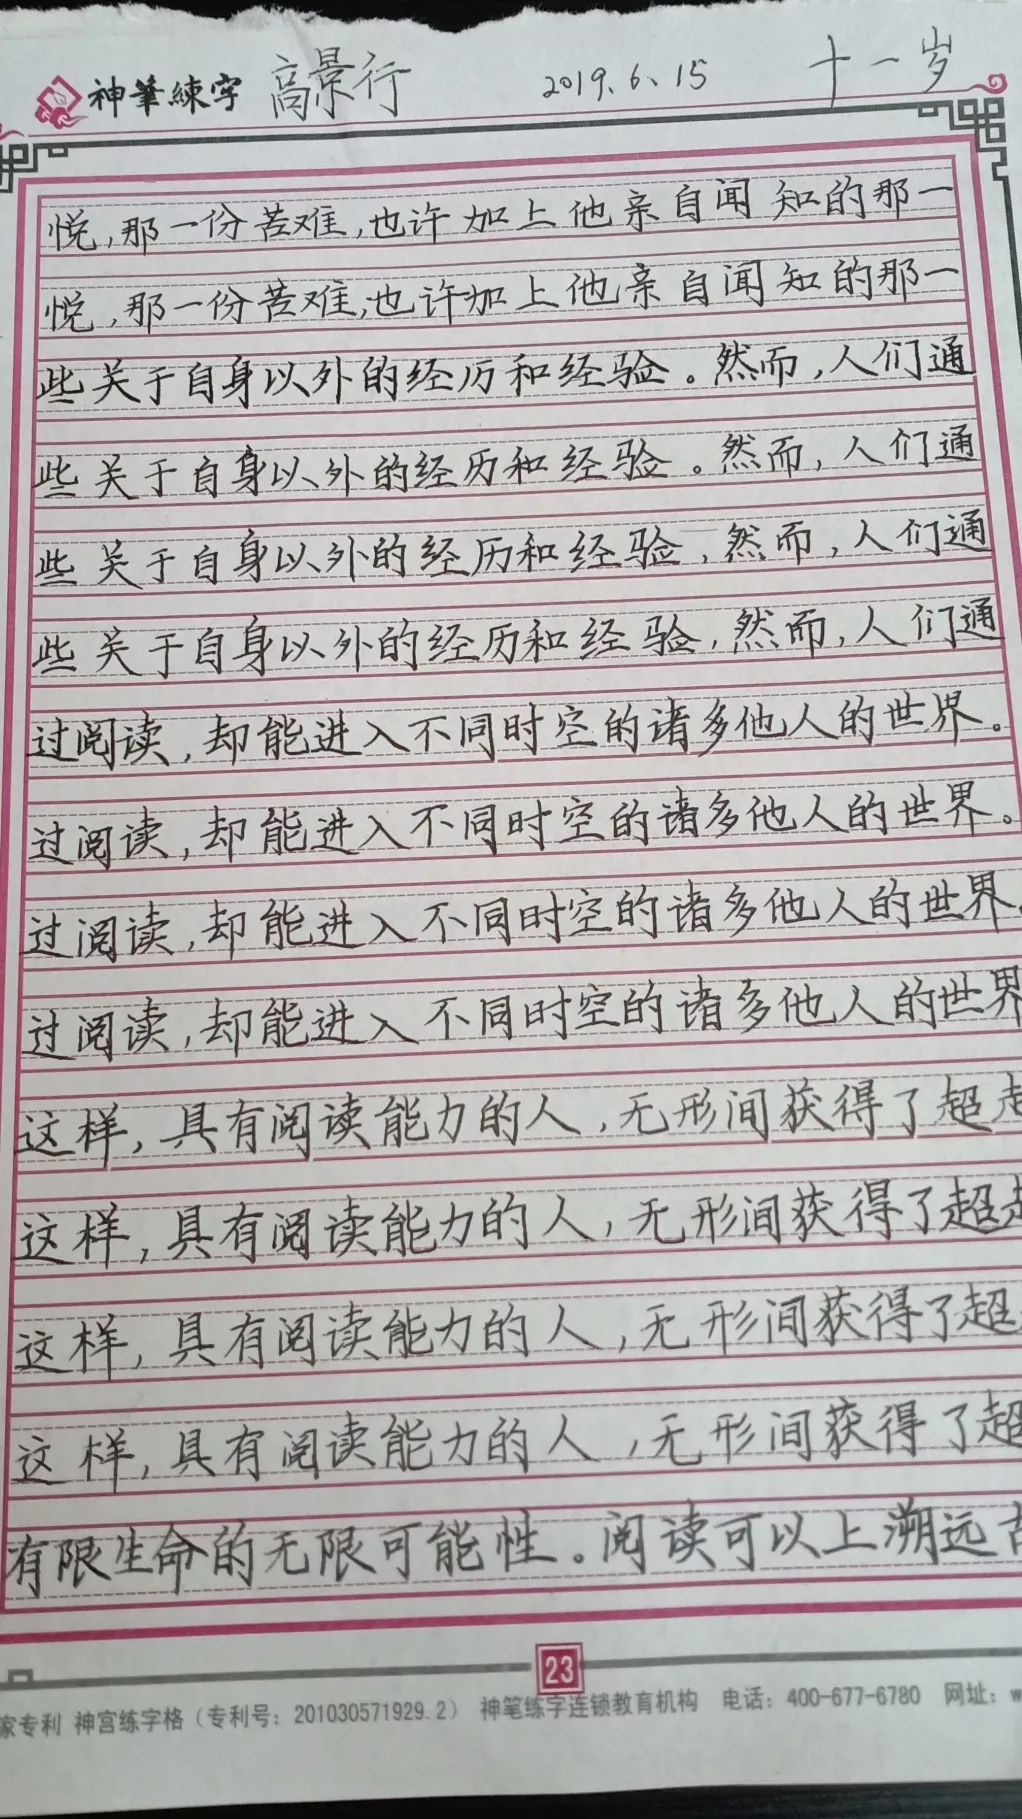 神筆練字 高景行 2019.6.15 十一岁
悦,那一份苦难,也许加上他亲自闻知的那一
悦,那一份苦难,也许加上他亲自闻知的那一
些关于自身以外的经历和经验。然而,人们通
些关于自身以外的经历和经验。然而,人们通
些关于自身以外的经历和经验,然而,人们通
些关于自身以外的经历和经验,然而,人们通
过阅读,却能进入不同时空的诸多他人的世界。
过阅读,却能进入不同时空的诸多他人的世界。
过阅读,却能进入不同时空的诸多他人的世界
过阅读,却能进入不同时空的诸多他人的世界
这样,具有阅读能力的人,无形间获得了超
这样,具有阅读能力的人,无形间获得了超
这样,具有阅读能力的人,无形间获得了超
这样,具有阅读能力的人,无形间获得了超
有限生命的无限可能性。阅读可以上溯远古
23
家专利 神宫练字格(专利号:201030571929.2) 神笔练字连锁教育机构 电话:400-677-6780 网址:w